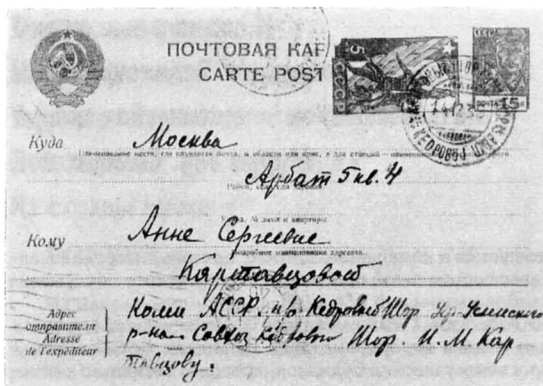 ПОЧТОВАЯ КАР
CARTE POST
5
СССР
ПОЧТА 15 К
Куда Москва
Арбат 5 кв. 4
Кому Анне Сергеевне
Подробное наименование адресата.
Картавцовой
Адрес
отправителя
Adresse
de l'expéditeur
Коми АССР. п/о Кедровый Шор.
р-на Совхоз Кедровый Шор. И. М. Кар
тавцову.